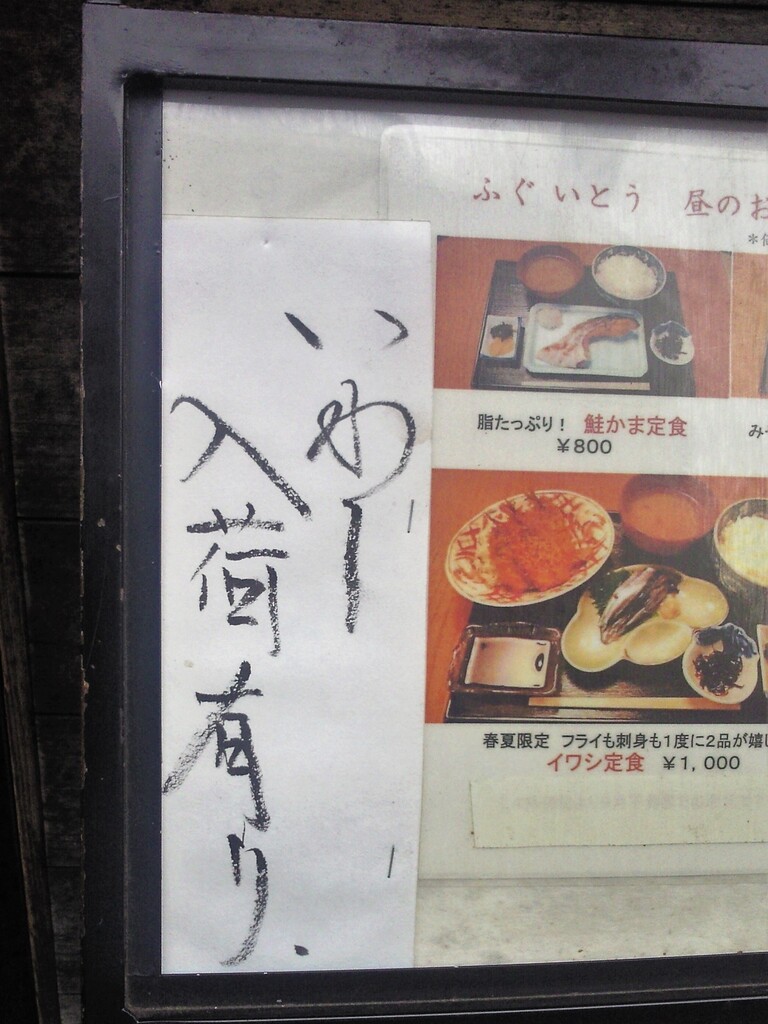 いわし
入荷有り.
ふぐ いとう 昼のお
脂たっぷり！ 鮭かま定食
￥800
み
春夏限定 フライも刺身も1度に2品が嬉し
イワシ定食 ￥1,000